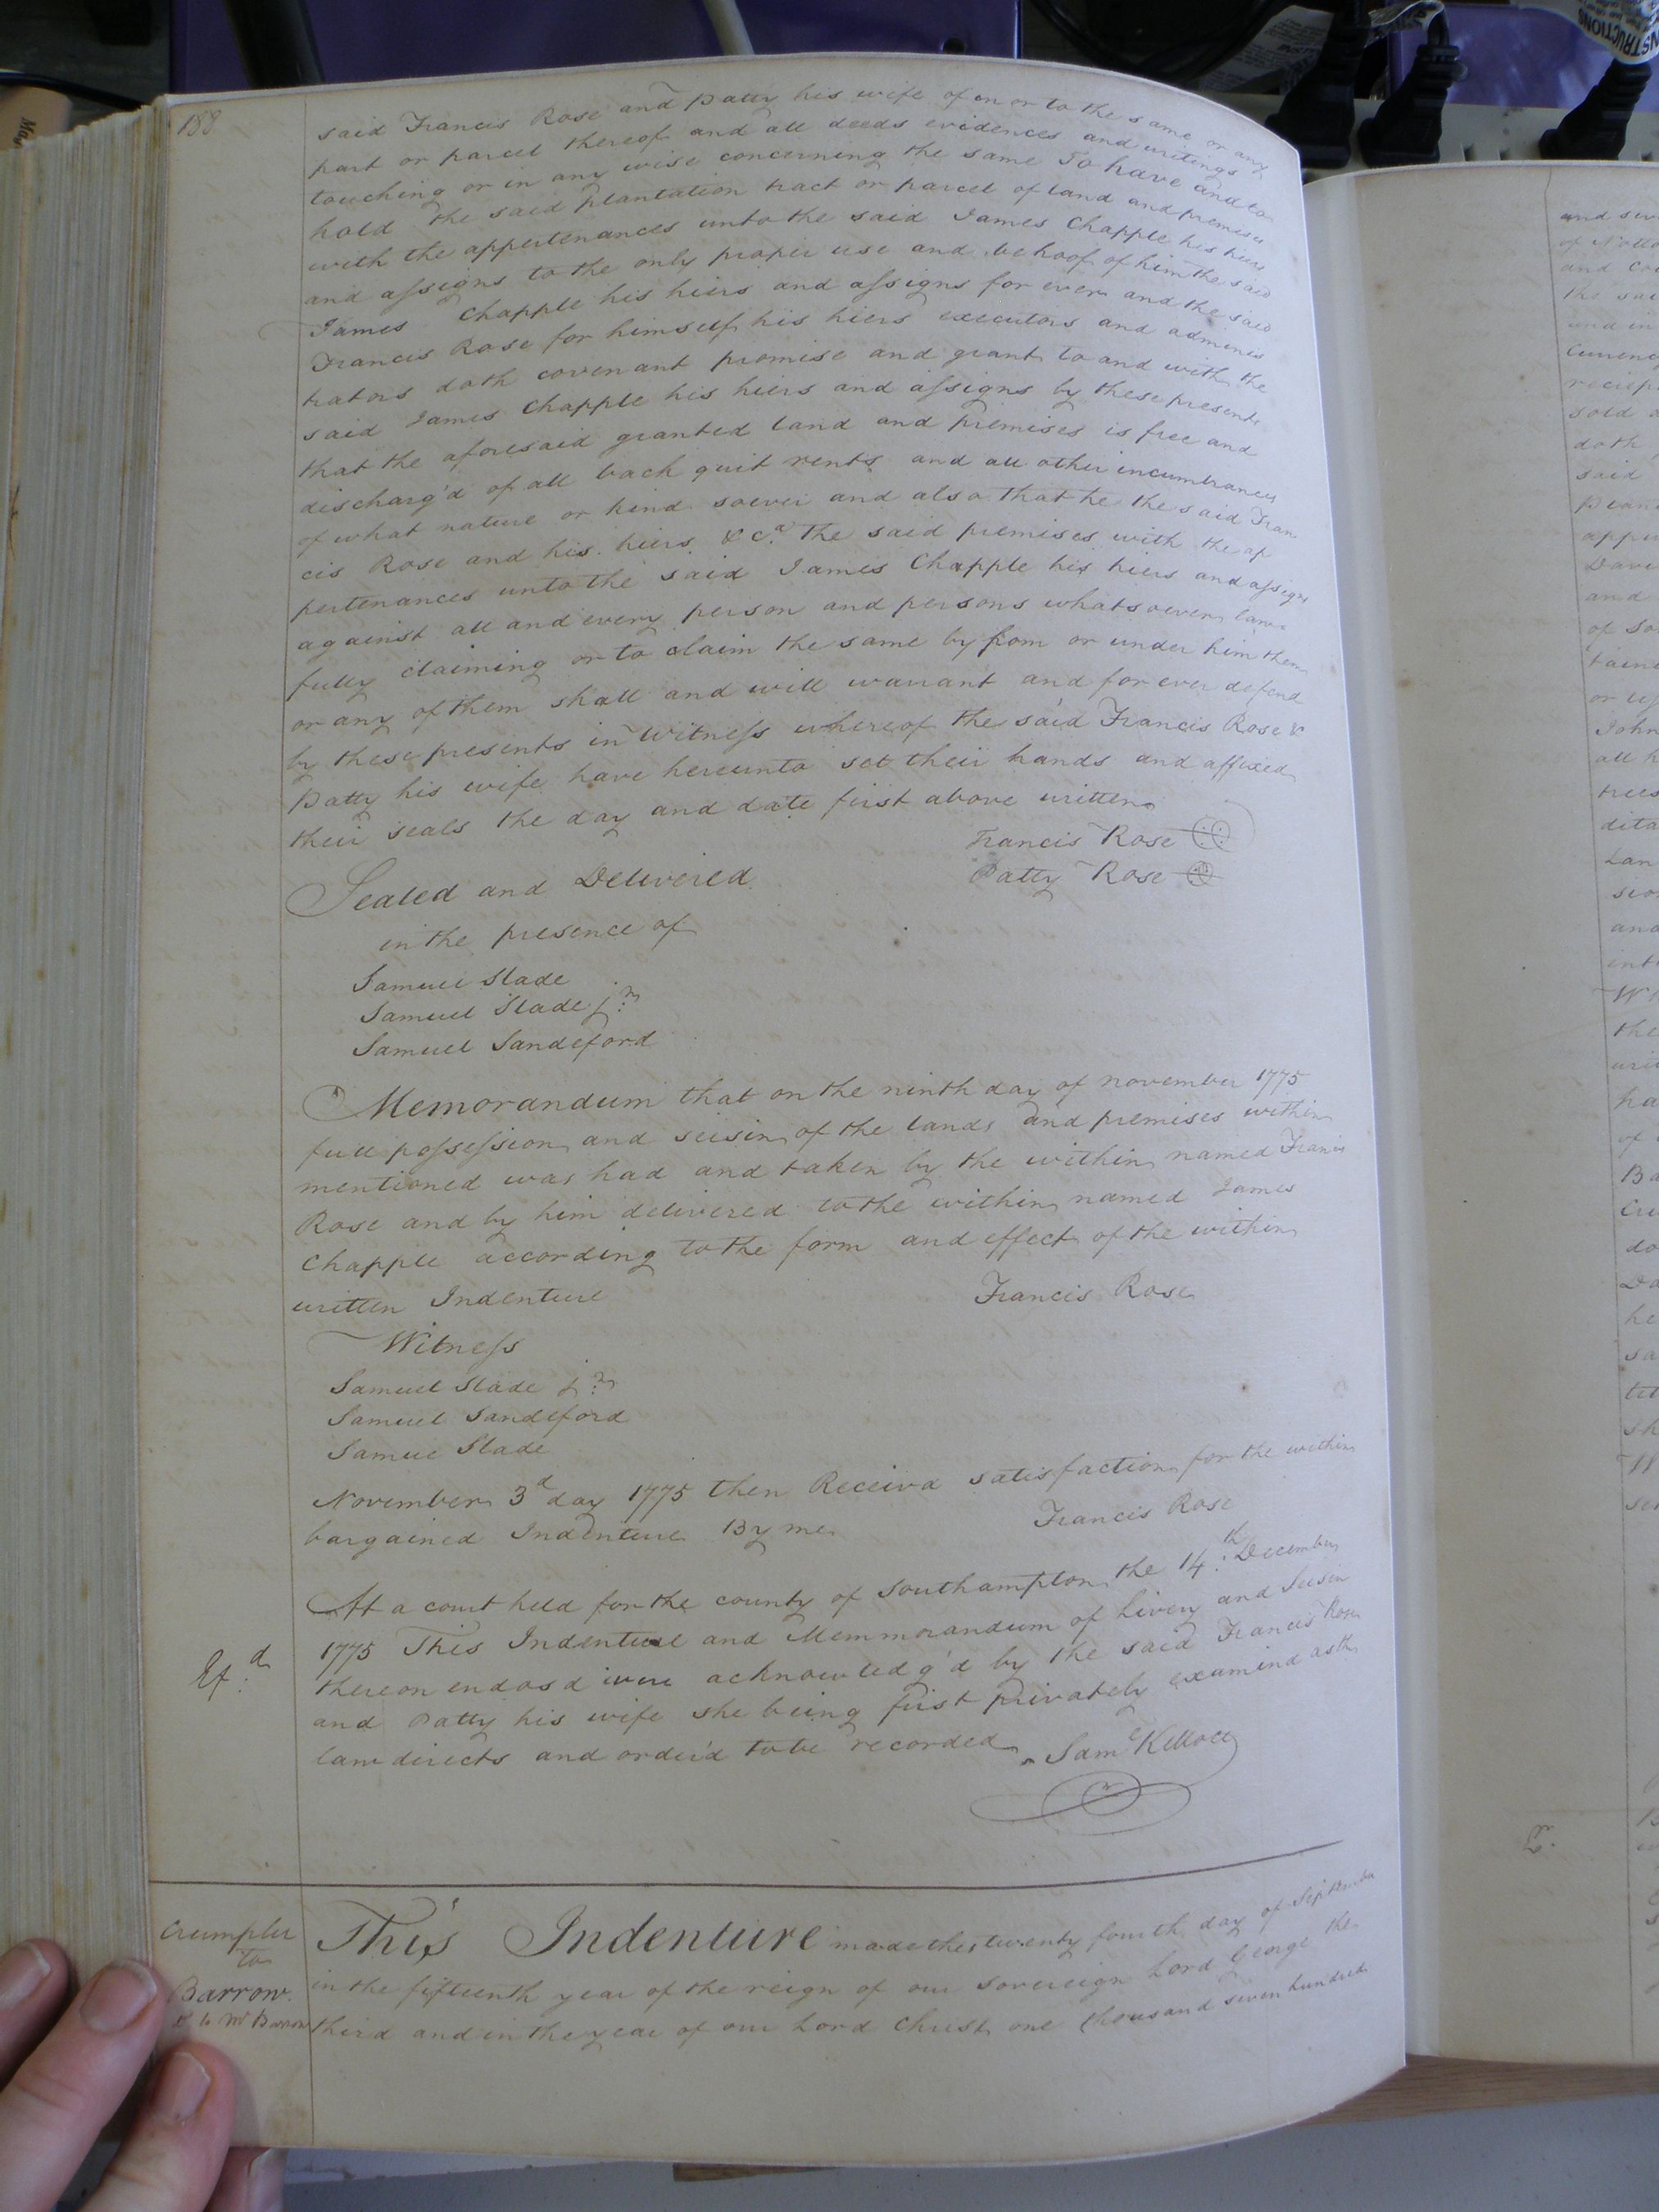 188
said Francis Rose and Patty his wife of in or to the same or any
part or parcel thereof and all deeds evidences and writings
touching or in any wise concerning the same To have and to
hold the said plantation tract or parcel of land and premises
with the appertenances unto the said James Chapple his hiers
and assigns to the only proper use and behoof of him the said
James Chapple his hiers and assigns for ever and the said
Francis Rose for himself his hiers executors and adminis
trators doth covenant promise and grant to and with the
said James Chapple his hiers and assigns by these presents
that the aforesaid granted land and premises is free and
discharg'd of all back quit rents and all other incumbrances
of what nature or kind soever and also that he the said Fran
cis Rose and his hiers &ca. the said premises with the ap
pertenances unto the said James Chapple his hiers and assigns
against all and every person and persons whatsoever law
fully claiming or to claim the same by from or under him them
or any of them shall and will warrant and for ever defend
by these presents in Witness whereof the said Francis Rose &
Patty his wife have hereunto set their hands and affixed
their seals the day and date first above written
Francis Rose
Sealed and Delivered Patty Rose
in the presence of
Samuel Slade
Samuel Slade jr.
Samuel Sandeford
Memorandum that on the ninth day of november 1775
full possession and seisin of the lands and premises within
mentioned was had and taken by the within named Francis
Rose and by him delivered to the within named James
Chapple according to the form and effect of the within
written Indenture Francis Rose
Witness
Samuel Slade jr.
Samuel Sandeford
Samue Slade
November 3d day 1775 then Receivd satisfaction for the within
bargained Indenture By me Francis Rose
At a court held for the county of Southampton the 14.th December
1775 This Indenture and Memmorandum of Livery and Seisin
Ex.d
thereon endosd were acknowledg'd by the said Francis Rose
and Patty his wife she being first privately examind as the
law directs and order'd to be recorded Saml Kello
Crumpler
to
Barrow.
This Indenture made this twenty fourth day of September
in the fifteenth year of the reign of our sovereign Lord George the
third and in the year of our Lord Christ one thousand seven hundred